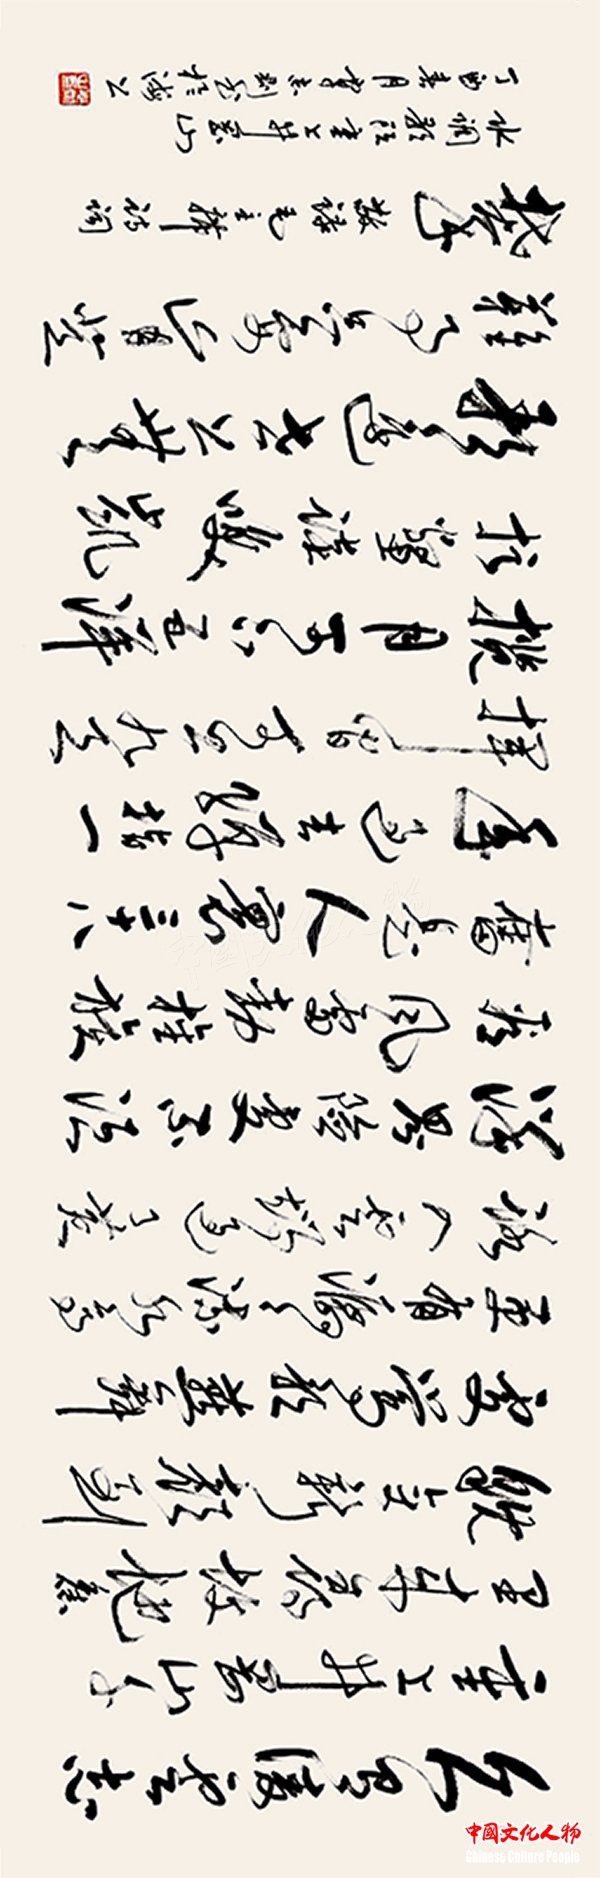 久有凌云志
重上井冈山千
里来寻故地舊
貌变新颜到
处莺歌燕舞
更有潺潺流水高
路入云端过了黄
洋界险处不须
看风雷动旌旗
奮是人寰三十八
年过去弹指一
挥间可上九天
揽月可下五洋
捉鳖谈笑凯
歌还世上无
难事只要肯登
攀
毛主席诗词
水调歌头重上井冈山
丁酉春月
中國文化人物
中國文化人物
Chinese Culture People